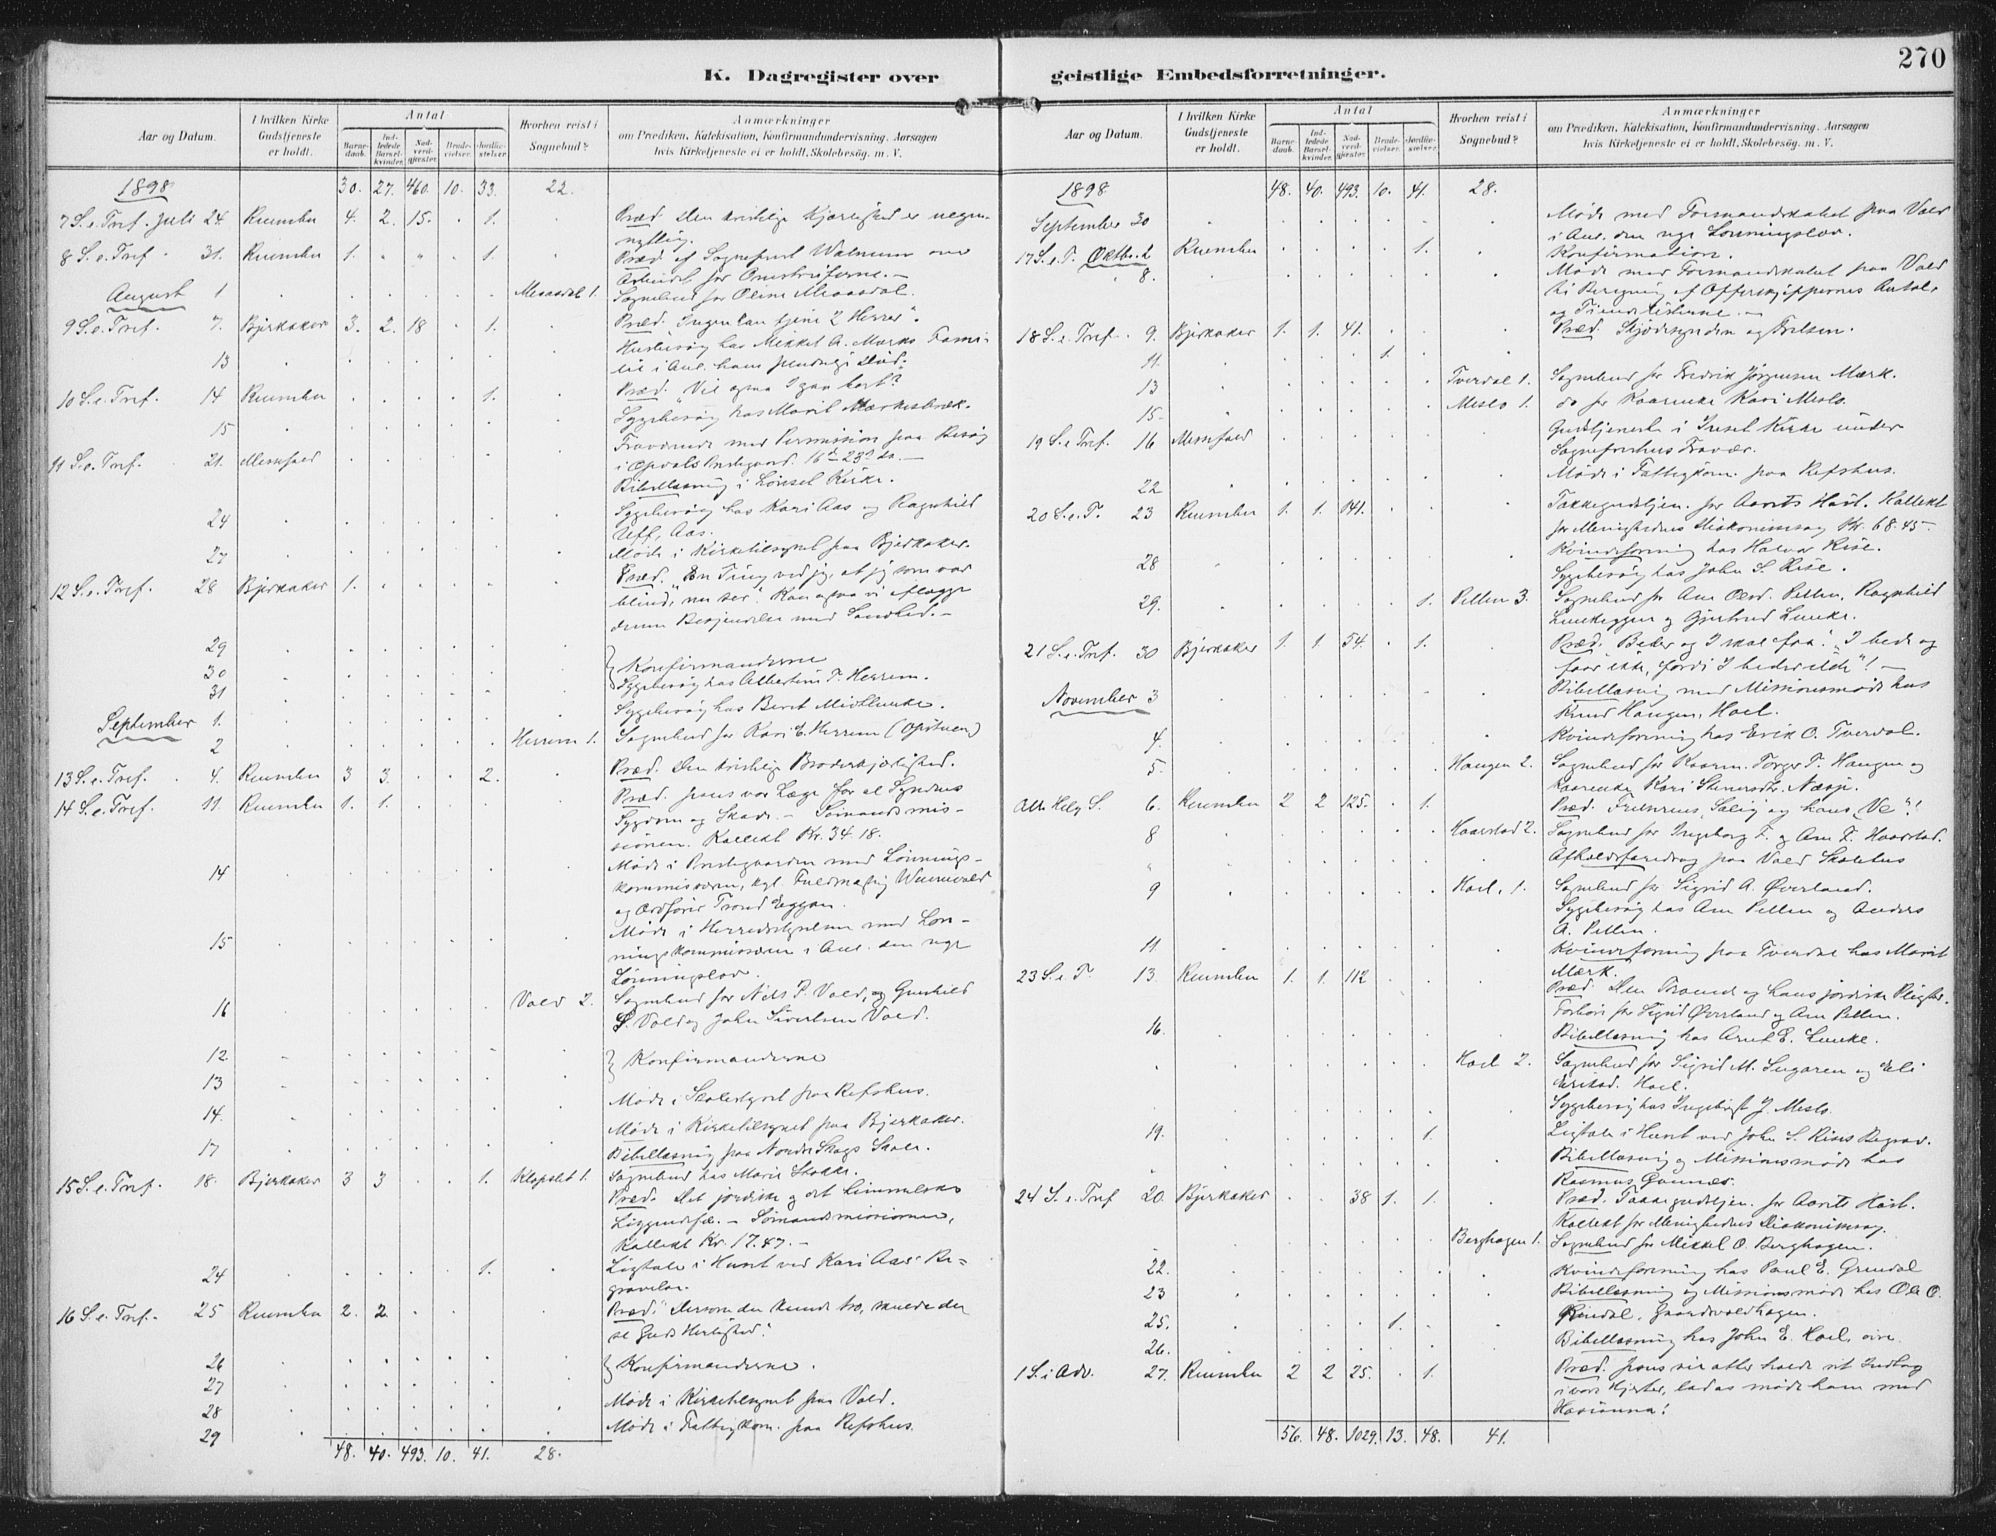 270
K. Dagregister over geistlige Embedsforretninger.
Aar og Datum.
I hvilken Kirke Gudstjeneste er holdt.
Antal
Barnedaab.
Indledede Barselkvinder.
Nadverdgjester.
Brudevielser.
Jordfæstelser.
Hvorhen reist i Sognebud?
Anmærkninger
om Prædiken, Katekisation, Konfirmandundervisning. Aarsagen
hvis Kirketjeneste ei er holdt, Skolebesøg. m. V.
1898 30. 27. 460. 10. 33. 22.
7 S. e. Tref. Juli 24. 4. 2. 15. 1. Præd. Den kristelige Kjærlighed er uegen-
nyttig.
8 S. e. Tref. 31. 1. 1. Præd. af Sogneprest Walnum om
Arbeidet for
August 1 1. Sognebud for Oline
9 S. e. Tref. 7. Bjerkaker 3. 2. 18 1. Præd. "Ingen kan tjene 2 Herrer".
13 Husbesøg hos Mikkel A. Mærks Fami-
lie i Anl. hans
10 S. e. Tref. 14 1. Præd. "Vil ogsaa I gaa bort?"
15 Sygebesøg hos Marit
Fraværende med Permission paa Besøg
11 S. e. Tref. 21. Messefald i Opdals Prestegaard. 16de-23de ds.
Bibellæsning i Lønset Kirke.
24 Sygebesøg hos Kari Aas og Ragnhild
Aas.
27 Møde i Kirketilsynet paa Bjerkaker.
12 S. e. Tref. 28 Bjerkaker 1. Præd. "En Ting ved jeg, at jeg som var
blind, nu ser." Kan ogsaa vi aflægge
denne Bekjendelse med Sandhed.
29
30 Konfirmanderne
31 Sygebesøg hos Albertine T. Herrem.
September 1. Sygebesøg hos Berit
2 Herrem 1. Sognebud for Kari E. Herrem
13 S. e. Tref. 4. 3 3. 2. Præd. Den kristelige Broderkjærlighed.
14 S. e. Tref. 11. 1. 1. Præd. Jesus vor Læge for al Syndens
Sygdom og Skade. - Sømandsmis-
sionen. Kollekt Kr. 34.18.
14 Møde i Prestegaarden med Lønnings-
kommissæren, kgl. Fuldmægtig
og Ordfører Trond Eggan.
15 Møde i Herredsstyrelsen med Løn-
ningskommissæren i Anl. den nye
Lønningslov.
16 Vold 2. Sognebud for Nils P. Vold, og Gunhild
Vold og John Sivertsen Vold.
12 Konfirmanderne
13
14. Møde i Skolestyret paa Refshus.
17 Møde i Kirketilsynet paa Bjerkaker.
Bibellæsning paa Nordre Skogs Skole.
15 S. e. Tref. 18. Bjerkaker 3 3 1. 1. Sognebud hos Marit
Præd. Det jordiske og det himmelske
Liggendefæ. - Sømandsmissionen,
Kollekt Kr. 17.47.
24 1. Ligtale i Huset ved Kari Aas' Be-
gravelse.
16 S. e. Tref. 25 2. 2. Præd. "Dersom du kunde tro, skulde du
se Guds Herlighed."
26 Konfirmanderne.
27
28 Møde i Kirketilsynet paa Vold.
29 Møde i Fattigkom. paa Refshus.
48. 40. 493. 10. 41. 28.
Aar og Datum.
I hvilken Kirke Gudstjeneste er holdt.
Antal
Barnedaab.
Indledede Barselkvinder.
Nadverdgjester.
Brudevielser.
Jordfæstelser.
Hvorhen reist i Sognebud?
Anmærkninger
om Prædiken, Katekisation, Konfirmandundervisning. Aarsagen
hvis Kirketjeneste ei er holdt, Skolebesøg. m. V.
1898 48. 40. 493. 10. 41. 28.
September 30 Møde med Formandskabet paa Vold
i Anl. den nye Lønningslov.
17 S. e. T. Oktbr. 2 1. Konfirmation.
8. Møde med Formandskabet paa Vold
til Beregning af Offerskjæppernes Antal
og Tiendelisterne.
18 S. e. Tref. 9. Bjerkaker 1. 1. 41. Præd. Skjødesynden og Frelsen.
11. 1.
13 Tverdal 1. Sognebud for Fredrik Jørgensen Mærk.
15. Meslo 1. do for Kaarenke Kari Meslo.
19 S. e. Tref. 16 Messefald Gudstjeneste i Inset Kirke under
Sogneprestens Fravær.
22 Møde i Fattigkom. paa Refshus.
20 S. e. T. 23 1. 1. 141. Takkegudstjen. for Aarets Høst. Kollekt
for Menighedens Diakonissesag Kr. 68.45.
28 Kvindeforening hos Halvor Rise.
Sygebesøg hos John S. Rise.
29. 1. Pellen 3. Sognebud for Ane Olsd. Pellen, Ragnhild
og Gjertrud
21 S. e. Tref. 30 Bjerkaker 1. 1 54. 1. Præd. "Beder og I skal faa". "I bede og
faar ikke, fordi I beder ilde"!
November 3 Bibellæsning med Missionsmøde hos
Knud Haugen, Hoel.
4. Kvindeforening hos Erik O. Tverdal.
5. Haugen 2. Sognebud for Kaarm. Torger T. Haugen og
Kaarenke Kari Næsje.
Alle Helg. S. 6. 2 2 125. 1. Præd. Salig og hans "Ve"!
8 Haarstad 2. Sognebud for Ingeborg T. og Ane T. Haarstad.
Afholdsforedrag paa Vold Skolehus
9 Hoel. 1. Sognebud for Sigrid A. Øverland.
Sygebesøg hos Ane Pellen og Anders
A. Pellen.
11. Kvindeforening paa Tverdal hos Marit
Mærk.
23 S. e. T 13. 1. 1. 112 Præd. Den Troende og hans jordiske Pligter.
Forbøn for Sigrid Øverland og Ane Pellen.
16. Bibellæsning hos Arnt E.
Hoel 2. Sognebud for Sigrid M. og Eli
Hoel.
Sygebesøg hos Ingebrigt J. Meslo.
19. 1. Ligtale i Huset ved John S. Rises Begrav.
Bibellæsning og Missionsmøde hos
Rasmus
24 S. e. Tref 20. Bjerkaker 38 1. 1. Præd. Takkegudstjen. for Aarets Høst.
Kollekt for Menighedens Diakonissesag.
Berghagen 1. Sognebud for Mikkel O. Berghagen.
22. Kvindeforening hos Paul E. Grindal
23 Bibellæsning og Missionsmøde hos Ole O.
25. 1.
26. Bibellæsning hos John E. Hoel,
1 S. i Adv. 27. 2 2 25. 1. Præd. Jesus vil atter holde sit Indtog
i vore Hjerter, lad os møde ham med
Hosianna!
56. 48. 1029. 13. 48. 41.